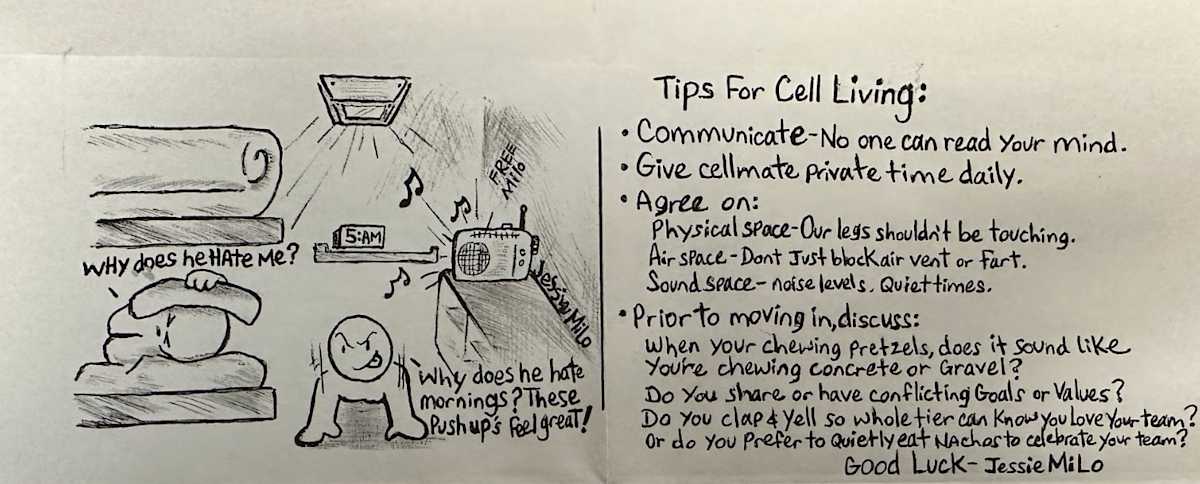 FREE
Milo
5:AM
WHY does he HAte Me?
Jessie Milo
Why does he hate
mornings? These
Pushup's Feel great!
Tips For Cell Living:
• Communicate-No one can read your mind.
• Give cellmate private time daily.
• Agree on:
Physical space-Our legs shouldn't be touching.
Air space-Dont Just block air vent or Fart.
Sound space-noise levels. Quiet times.
• Prior to moving in, discuss:
When your chewing pretzels, does it sound like
You're chewing concrete or Gravel?
Do you share or have conflicting Goals or Values?
Do you clap & yell so whole tier can know you Love Your team?
Or do you Prefer to Quietly eat NAchos to celebrate your team?
Good Luck-Jessie MiLo